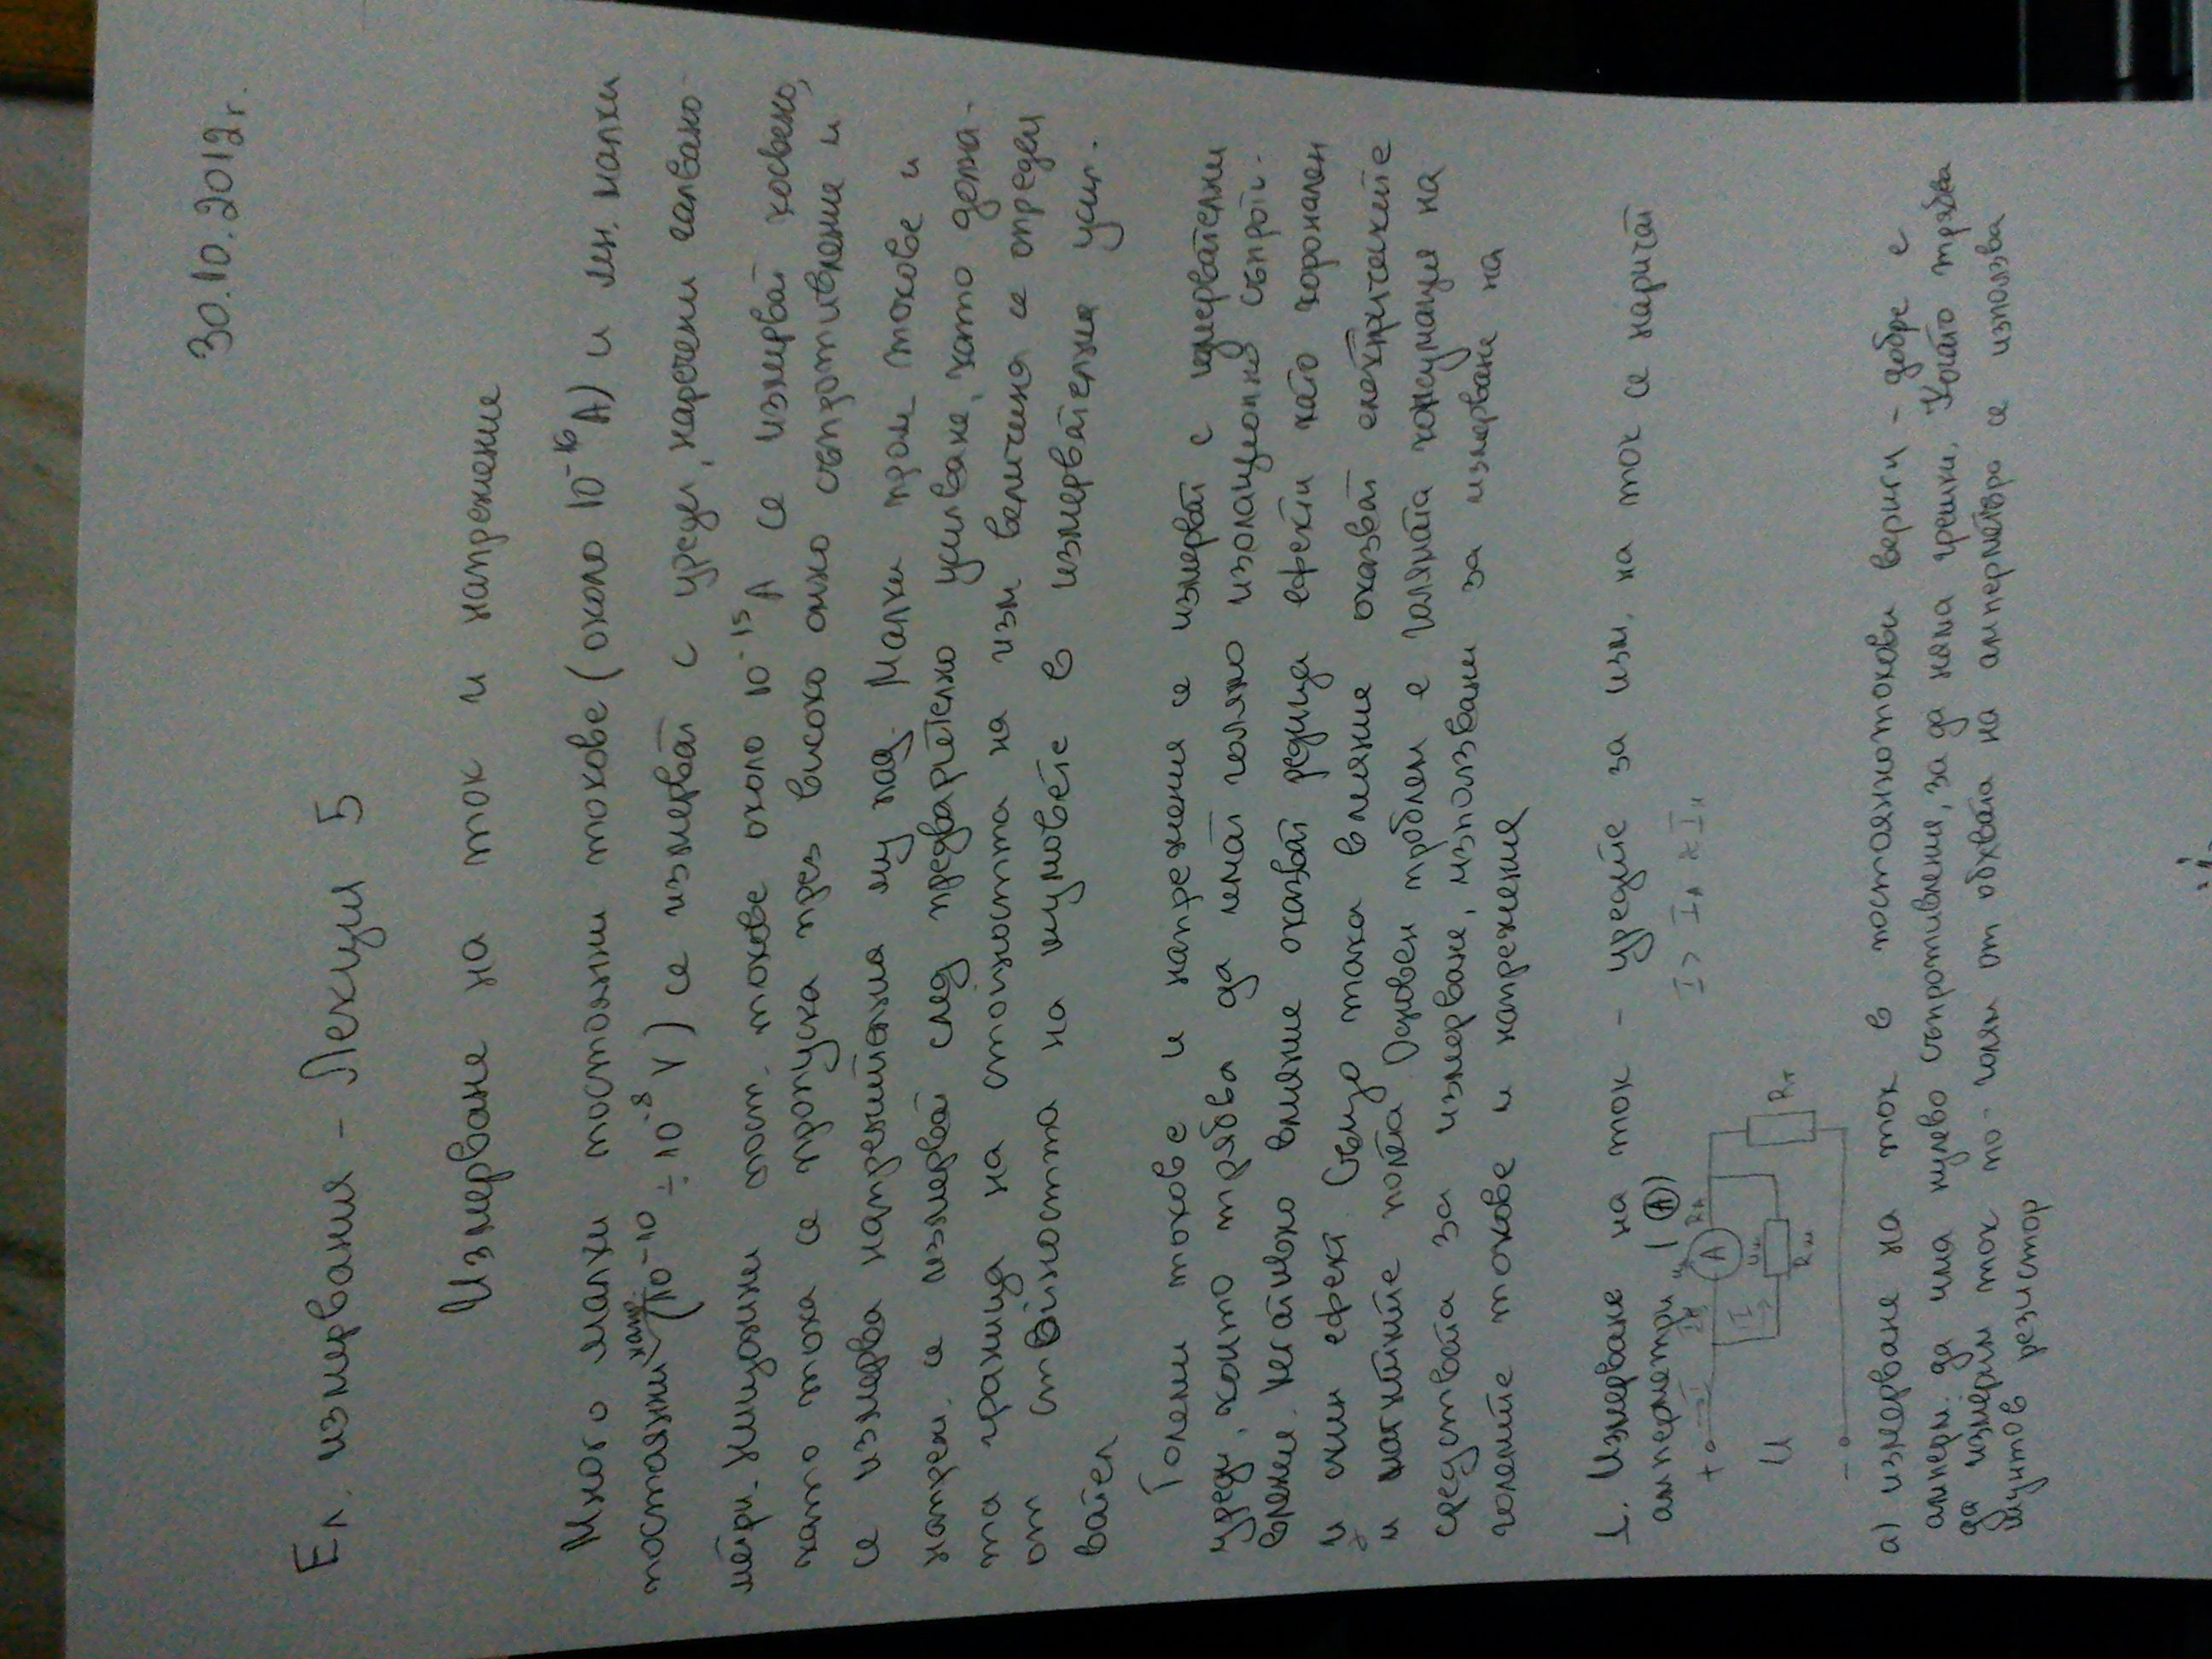 30.10.2012г.
Ел. измервания - Лекция 5
Измерване на ток и напрежение
Много малки постоянни токове (около 10⁻¹⁶ А) и мн. малки
постоянни напр. (10⁻¹⁰ ÷ 10⁻⁸ V) се измерват с уреди, наречени галвано-
метри. Нищожни пост. токове около 10⁻¹⁵ А се измерват косвено,
като тока се пропуска през високо омно съпротивление и
се измерва напрежителния му пад. Малки пром токове и
напреж. се измерват след предварително усилване, като долна-
та граница на стойността на изм величина се определя
от стойността на шумовете в измервателния усил-
вател
Големи токове и напрежения се измерват с измервателни
уреди, които трябва да имат голямо изолационно съпроти-
вление. Негативно влияние оказват редица ефекти като коронален
и скин ефект. Също така влияние оказват електрическите
и магнитните полета. Основен проблем е голямата консумация на
средствата за измерване, използвани за измерване на
големите токове и напрежения
1. Измерване на ток - уредите за изм. на ток се наричат
амперметри (A)
I > I_A
+ I A R_A
U R_ш R_т
-
а) измерване на ток в постояннотокови вериги - добре е
амперм. да има нулево съпротивление, за да няма грешки. Когато трябва
да измерим ток по-голям от обхвата на амперметъра се използва
шунтов резистор